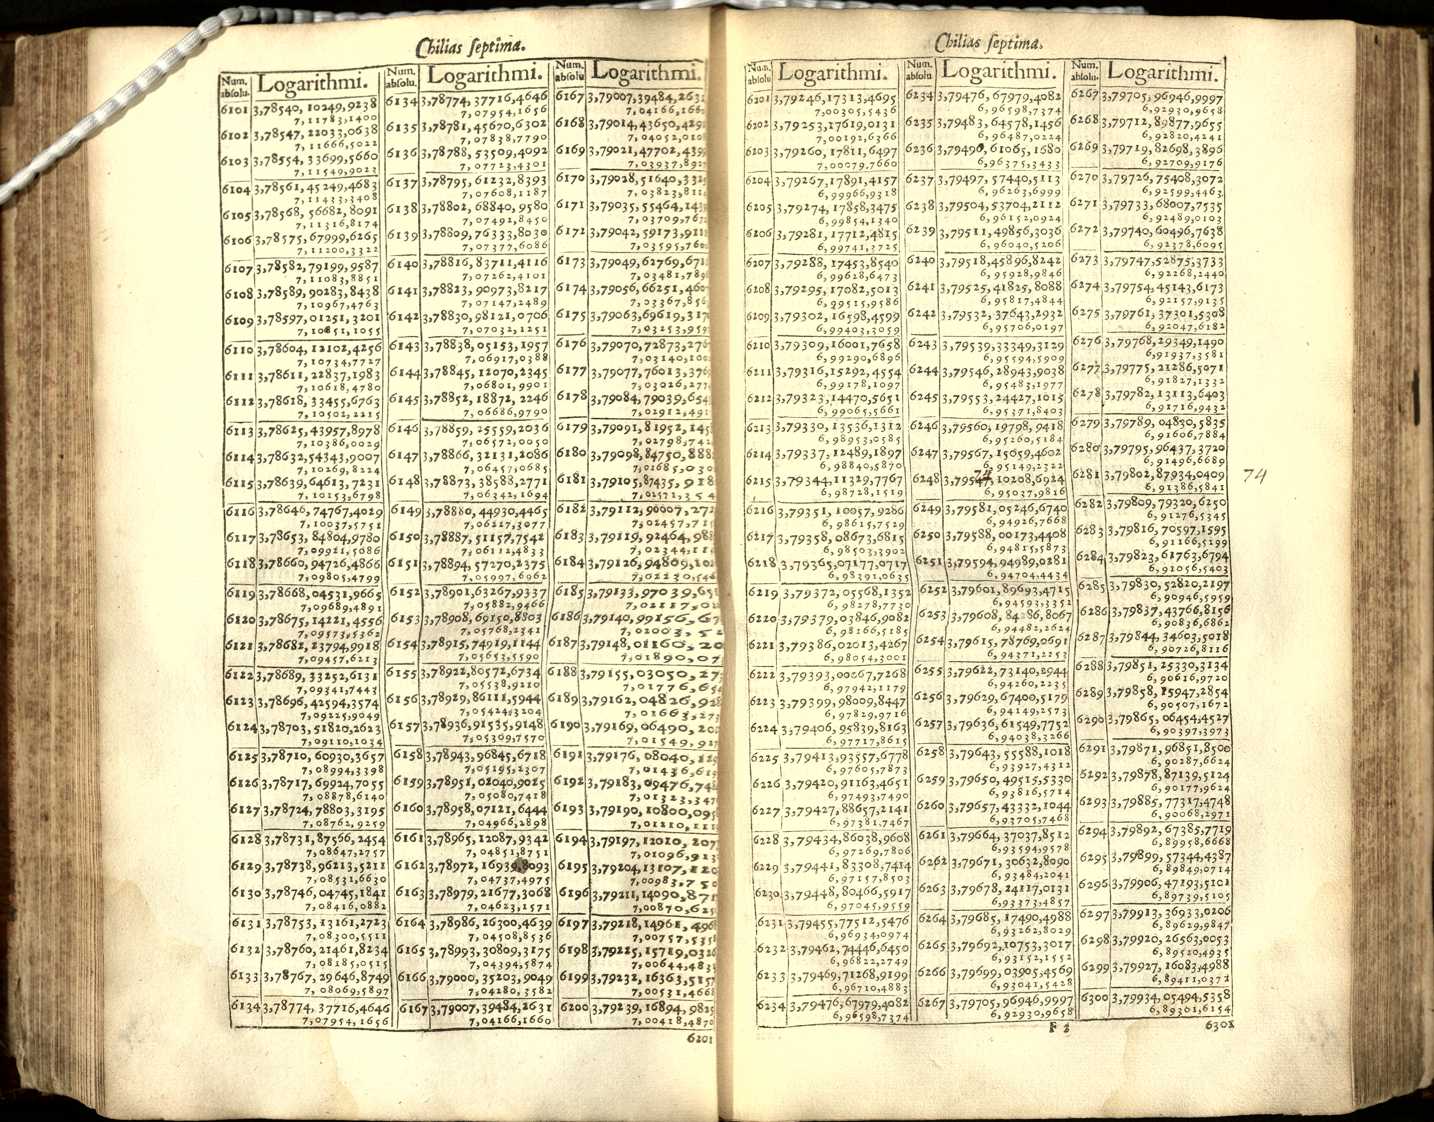 Chilias septima.
Num. absolu. Logarithmi.
6101 3,78540,10249,9238
7,11783,1400
6102 3,78547,22033,0638
7,11666,5022
6103 3,78554,33699,5660
7,11549,9023
6104 3,78561,45249,4683
7,11433,3408
6105 3,78568,56682,8091
7,11316,8174
6106 3,78575,67999,6265
7,11200,3322
6107 3,78582,79199,9587
7,11083,8851
6108 3,78589,90283,8438
7,10967,4763
6109 3,78597,01251,3201
7,10851,1055
6110 3,78604,12102,4256
7,10734,7727
6111 3,78611,22837,1983
7,10618,4780
6112 3,78618,33455,6763
7,10502,2215
6113 3,78625,43957,8978
7,10386,0029
6114 3,78632,54343,9007
7,10269,8224
6115 3,78639,64613,7231
7,10153,6798
6116 3,78646,74767,4029
7,10037,5751
6117 3,78653,84804,9780
7,09921,5086
6118 3,78660,94726,4866
7,09805,4799
6119 3,78668,04531,9665
7,09689,4891
6120 3,78675,14221,4556
7,09573,5362
6121 3,78682,23794,9918
7,09457,6213
6122 3,78689,33252,6131
7,09341,7443
6123 3,78696,42594,3574
7,09225,9049
6124 3,78703,51820,2623
7,09110,1034
6125 3,78710,60930,3657
7,08994,3398
6126 3,78717,69924,7055
7,08878,6140
6127 3,78724,78803,3195
7,08762,9259
6128 3,78731,87566,2454
7,08647,2757
6129 3,78738,96213,5211
7,08531,6630
6130 3,78746,04745,1841
7,08416,0882
6131 3,78753,13161,2723
7,08300,5511
6132 3,78760,21461,8234
7,08185,0515
6133 3,78767,29646,8749
7,08069,5897
6134 3,78774,37716,4646
7,07954,1656
Num. absolu. Logarithmi.
6134 3,78774,37716,4646
7,07954,1656
6135 3,78781,45670,6302
7,07838,7790
6136 3,78788,53509,4092
7,07723,4301
6137 3,78795,61232,8393
7,07608,1187
6138 3,78802,68840,9580
7,07492,8450
6139 3,78809,76333,8030
7,07377,6086
6140 3,78816,83711,4116
7,07262,4101
6141 3,78823,90973,8217
7,07147,2489
6142 3,78830,98121,0706
7,07032,1251
6143 3,78838,05153,1957
7,06917,0388
6144 3,78845,12070,2345
7,06801,9901
6145 3,78852,18872,2246
7,06686,9790
6146 3,78859,25559,2036
7,06572,0050
6147 3,78866,32131,2086
7,06457,0685
6148 3,78873,38588,2771
7,06342,1694
6149 3,78880,44930,4465
7,06227,3077
6150 3,78887,51157,7542
7,06112,4833
6151 3,78894,57270,2375
7,05997,6962
6152 3,78901,63267,9337
7,05882,9466
6153 3,78908,69150,8803
7,05768,2341
6154 3,78915,74919,1144
7,05653,5590
6155 3,78922,80572,6734
7,05538,9210
6156 3,78929,86111,5944
7,05424,3204
6157 3,78936,91535,9148
7,05309,7570
6158 3,78943,96845,6718
7,05195,2307
6159 3,78951,02040,9025
7,05080,7418
6160 3,78958,07121,6444
7,04966,2898
6161 3,78965,12087,9342
7,04851,8751
6162 3,78972,16939,8093
7,04737,4975
6163 3,78979,21677,3068
7,04623,1571
6164 3,78986,26300,4639
7,04508,8536
6165 3,78993,30809,3175
7,04394,5874
6166 3,79000,35203,9049
7,04280,3582
6167 3,79007,39484,2631
7,04166,1660
Num. absolu. Logarithmi.
6167 3,79007,39484,2631
7,04166,166
6168 3,79014,43650,429
7,04052,010
6169 3,79021,47702,439
7,03937,892
6170 3,79028,51640,332
7,03823,811
6171 3,79035,55464,143
7,03709,767
6172 3,79042,59173,911
7,03595,760
6173 3,79049,62769,671
7,03481,789
6174 3,79056,66251,460
7,03367,856
6175 3,79063,69619,317
7,03253,959
6176 3,79070,72873,276
7,03140,10
6177 3,79077,76013,376
7,03026,277
6178 3,79084,79039,654
7,02912,491
6179 3,79091,81952,145
7,02798,742
6180 3,79098,84750,888
7,01685,030
6181 3,79105,87435,918
7,02571,354
6182 3,79112,90007,272
7,02457,715
6183 3,79119,92464,988
7,02344,11
6184 3,79126,94809,10
7,02230,54
6185 3,79133,97039,65
7,02117,0
6186 3,79140,99156,67
7,02003,52
6187 3,79148,01160,20
7,01890,07
6188 3,79155,03050,27
7,01776,65
6189 3,79162,04826,92
7,01663,27
6190 3,79169,06490,20
7,01549,92
6191 3,79176,08040,12
7,01436,61
6192 3,79183,09476,74
7,01323,347
6193 3,79190,10800,095
7,01210,111
6194 3,79197,12010,207
7,01096,913
6195 3,79204,13107,120
7,00983,750
6196 3,79211,14090,871
7,00870,625
6197 3,79218,14961,496
7,00757,535
6198 3,79225,15719,032
7,00644,483
6199 3,79232,16363,515
7,00531,466
6200 3,79239,16894,982
7,00418,487
6201
Chilias septima.
Num. absolu Logarithmi.
6201 3,79246,17313,4695
7,00305,5436
6202 3,79253,17619,0131
7,00192,6366
6203 3,79260,17811,6497
7,00079,7660
6204 3,79267,17891,4157
6,99966,9318
6205 3,79274,17858,3475
6,99854,1340
6206 3,79281,17712,4815
6,99741,3725
6207 3,79288,17453,8540
6,99628,6473
6208 3,79295,17082,5013
6,99515,9586
6209 3,79302,16598,4599
6,99403,3059
6210 3,79309,16001,7658
6,99290,6896
6211 3,79316,15292,4554
6,99178,1097
6212 3,79323,14470,5651
6,99065,5661
6213 3,79330,13536,1312
6,98953,0585
6214 3,79337,12489,1897
6,98840,5870
6215 3,79344,11329,7767
6,98728,1519
6216 3,79351,10057,9286
6,98615,7529
6217 3,79358,08673,6815
6,98503,3902
6218 3,79365,07177,0717
6,98391,0635
6219 3,79372,05568,1352
6,98278,7730
6220 3,79379,03846,9082
6,98166,5185
6221 3,79386,02013,4267
6,98054,3001
6222 3,79393,00067,7268
6,97942,1179
6223 3,79399,98009,8447
6,97829,9716
6224 3,79406,95839,8163
6,97717,8615
6225 3,79413,93557,6778
6,97605,7873
6226 3,79420,91163,4651
6,97493,7490
6227 3,79427,88657,2141
6,97381,7467
6228 3,79434,86038,9608
6,97269,7806
6229 3,79441,83308,7414
6,97157,8503
6230 3,79448,80466,5917
6,97045,9559
6231 3,79455,77512,5476
6,96934,0974
6232 3,79462,74446,6450
6,96822,2749
6233 3,79469,71268,9199
6,96710,4883
6234 3,79476,67979,4082
6,96598,7374
Num. absolu Logarithmi.
6234 3,79476,67979,4082
6,96598,7374
6235 3,79483,64578,1456
6,96487,0224
6236 3,79490,61065,1680
6,96375,3433
6237 3,79497,57440,5113
6,96263,6999
6238 3,79504,53704,2112
6,96152,0924
6239 3,79511,49856,3036
6,96040,5206
6240 3,79518,45896,8242
6,95928,9846
6241 3,79525,41825,8088
6,95817,4844
6242 3,79532,37643,2932
6,95706,0197
6243 3,79539,33349,3129
6,95594,5909
6244 3,79546,28943,9038
6,95483,1977
6245 3,79553,24427,1015
6,95371,8403
6246 3,79560,19798,9418
6,95260,5184
6247 3,79567,15059,4602
6,95149,2322
74
6248 3,79547,10208,6924
6,95037,9816
6249 3,79581,05246,6740
6,94926,7668
6250 3,79588,00173,4408
6,94815,5873
6251 3,79594,94989,0281
6,94704,4434
6252 3,79601,89693,4715
6,94593,3352
6253 3,79608,84286,8067
6,94482,2624
6254 3,79615,78769,0691
6,94371,2253
6255 3,79622,73140,2944
6,94260,2235
6256 3,79629,67400,5179
6,94149,2573
6257 3,79636,61549,7752
6,94038,3266
6258 3,79643,55588,1018
6,93927,4312
6259 3,79650,49515,5330
6,93816,5714
6260 3,79657,43332,1044
6,93705,7468
6261 3,79664,37037,8512
6,93594,9578
6262 3,79671,30632,8090
6,93484,2041
6263 3,79678,24117,0131
6,93373,4857
6264 3,79685,17490,4988
6,93262,8029
6265 3,79692,10753,3017
6,93152,1552
6266 3,79699,03905,4569
6,93041,5428
6267 3,79705,96946,9997
6,92930,9658
F 2
Num. absolu Logarithmi.
6267 3,79705,96946,9997
6,92930,9658
6268 3,79712,89877,9655
6,92820,4241
6269 3,79719,82698,3896
6,92709,9176
6270 3,79726,75408,3072
6,92599,4463
6271 3,79733,68007,7535
6,92489,0103
6272 3,79740,60496,7638
6,92378,6095
6273 3,79747,52875,3733
6,92268,2440
6274 3,79754,45143,6173
6,92157,9135
6275 3,79761,37301,5308
6,92047,6182
6276 3,79768,29349,1490
6,91937,3581
6277 3,79775,21286,5071
6,91827,1332
6278 3,79782,13113,6403
6,91716,9432
6279 3,79789,04830,5835
6,91606,7884
6280 3,79795,96437,3720
6,91496,6689
6281 3,79802,87934,0409
6,91386,5841
6282 3,79809,79320,6250
6,91276,5345
6283 3,79816,70597,1595
6,91166,5199
6284 3,79823,61763,6794
6,91056,5403
6285 3,79830,52820,2197
6,90946,5959
6286 3,79837,43766,8156
6,90836,6862
6287 3,79844,34603,5018
6,90726,8116
6288 3,79851,25330,3134
6,90616,9720
6289 3,79858,15947,2854
6,90507,1672
6290 3,79865,06454,4527
6,90397,3973
6291 3,79871,96851,8500
6,90287,6624
6292 3,79878,87139,5124
6,90177,9624
6293 3,79885,77317,4748
6,90068,2971
6294 3,79892,67385,7719
6,89958,6668
6295 3,79899,57344,4387
6,89849,0714
6296 3,79906,47193,5101
6,89739,5105
6297 3,79913,36933,0206
6,89629,9847
6298 3,79920,26563,0053
6,89520,4935
6299 3,79927,16083,4988
6,89411,0372
6300 3,79934,05494,5358
6,89301,6154
6301
74